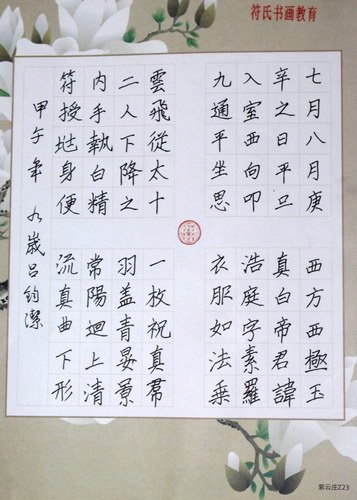 符氏书画教育
七月八月庚
辛之日平旦
入室西向叩
九通平坐思
西方西極玉
真白帝君諱
浩庭字素羅
衣服如法乘
雲飛從太十
二人下降之
内手執白精
符授地身便
一枚祝真帝
羽盖青晏景
常陽迴上清
流真曲下形
甲午年 九歲吕鈞潔
紫云庄Z23